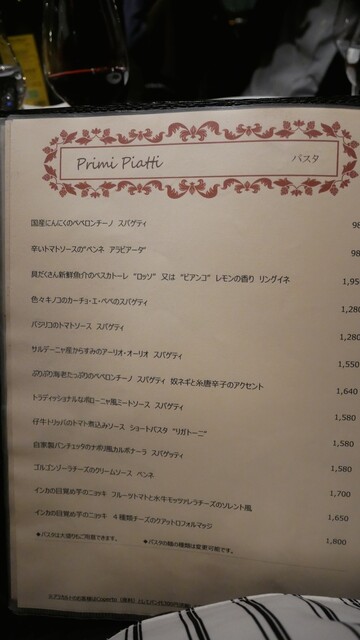 Primi Piatti パスタ
国産にんにくのペペロンチーノ スパゲティ 98
辛いトマトソースの"ペンネ アラビアータ" 98
具だくさん新鮮魚介のペスカトーレ "ロッソ" 又は "ビアンコ" レモンの香り リングイネ 1,95
色々キノコのカーチョ・エ・ペペのスパゲティ 1,280
バジリコのトマトソース スパゲティ 1,280
サルデーニャ産からすみのアーリオ・オーリオ スパゲティ 1,550
ぷりぷり海老たっぷりのペペロンチーノ スパゲティ 奴ネギと糸唐辛子のアクセント 1,640
トラディッショナルなボローニャ風ミートソース スパゲティ 1,580
仔牛トリッパのトマト煮込みソース ショートパスタ "リガトーニ" 1,580
自家製パンチェッタのナポリ風カルボナーラ スパゲッティ 1,580
ゴルゴンゾーラチーズのクリームソース ペンネ 1,580
インカの目覚め芋のニョッキ フルーツトマトと水牛モッツァレラチーズのソレント風 1,700
インカの目覚め芋のニョッキ 4種類チーズのクアットロフォルマッジ 1,650
1,800
★パスタは大盛りもご用意できます。 ★パスタの麺の種類は変更可能です。